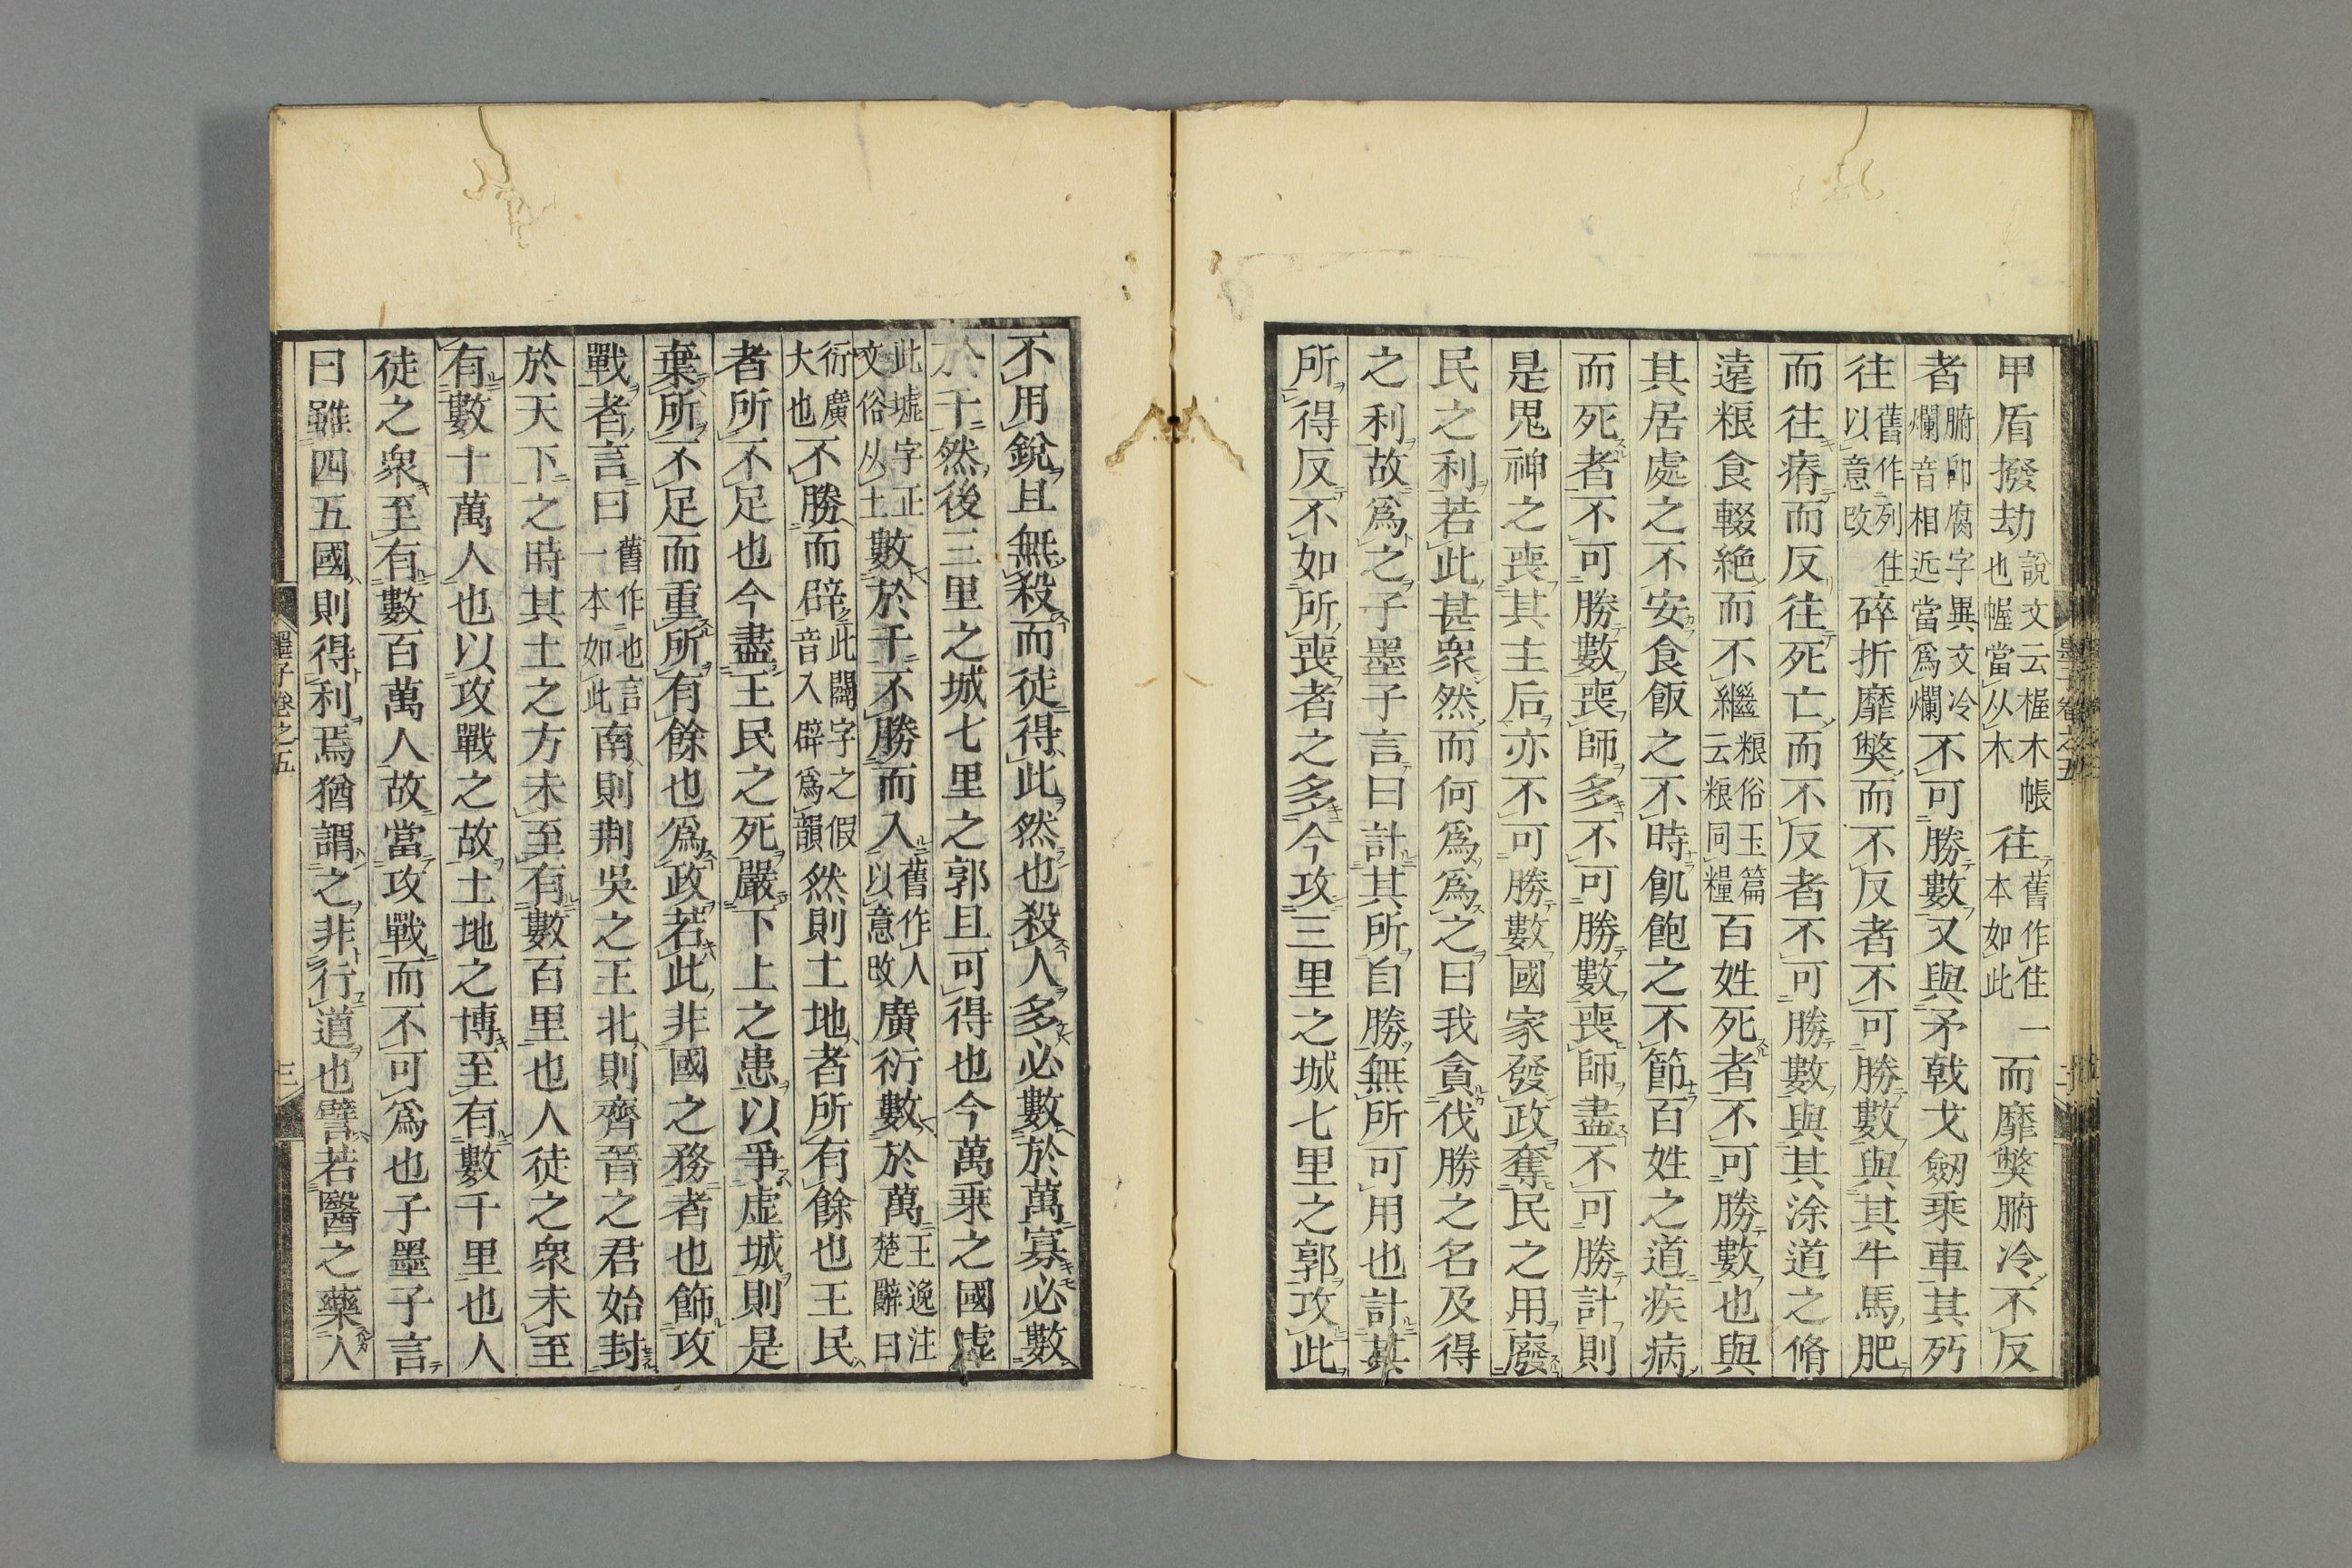 甲盾撥劫說文云楃木帳也幄當从木往舊作住一本如此而靡獘腑冷不反
者腑卽腐字異文冷爛音相近當爲爛不可勝數又與矛戟戈劒乘車其䏦
往舊作列住以意改碎折靡獘而不反者不可勝數與其牛馬肥
而往瘠而反往死亡而不反者不可勝數與其涂道之脩
遠粮食輟絶而不繼粮俗玉篇云粮同糧百姓死者不可勝數也與
其居處之不安食飯之不時飢飽之不節百姓之道疾病
而死者不可勝數喪師多不可勝數喪師盡不可勝計則
是鬼神之喪其主后亦不可勝數國家發政奪民之用廢
民之利若此甚衆然而何爲爲之曰我貪伐勝之名及得
之利故爲之子墨子言曰計其所自勝無所可用也計其
所得反不如所喪者之多今攻三里之城七里之郭攻此
墨子卷之五
二
不用銳且無殺而徒得此然也殺人多必數於萬寡必數
於千然後三里之城七里之郭且可得也今萬乘之國虛
此墟字正文俗从土數於千不勝而入舊作人以意改廣衍數於萬王逸注楚辭曰
衍廣大也不勝而辟此闢字之假音入辟爲韻然則土地者所有餘也王民
者所不足也今盡王民之死嚴下上之患以爭虛城則是
棄所不足而重所有餘也爲政若此非國之務者也飾攻
戰者言曰舊作也言一本如此南則荆吳之王北則齊晉之君始封
於天下之時其土之方未至有數百里也人徒之衆未至
有數十萬人也以攻戰之故土地之博至有數千里也人
徒之衆至有數百萬人故當攻戰而不可爲也子墨子言
曰雖四五國則得利焉猶謂之非行道也譬若醫之藥人
墨子卷之五
三